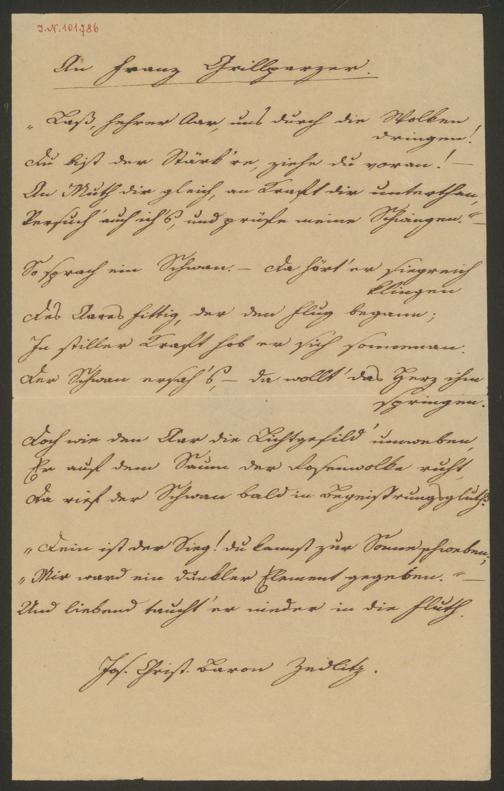 J.N. 101.786
An Franz Grillparzer.
"Laß, hehrer Aar, uns durch die Wolken
dringen!
Du bist der Stärk're, ziehe du voran! —
An Muth dir gleich, an Kraft dir unterthan,
Versuch' auch ich's, und prüfe meine Schwingen." —
So sprach ein Schwan. — Da hört' er siegreich
klingen
Des Aares Fittig, der den Flug begann;
In stiller Kraft hob er sich sonnenan.
Der Schwan ersah's, — da wollt' das Herz ihm
springen.
Doch wie den Aar die Lichtgefild' umweben,
Er auf dem Saum der Rosenwolke ruht,
Da rief der Schwan bald in Begeistrungsgluth:
"Dein ist der Sieg! du kannst zur Sonne schweben,
"Mir ward ein dunkler Element gegeben." —
Und liebend taucht' er nieder in die Fluth.
Jos. Christ. Baron Zedlitz.